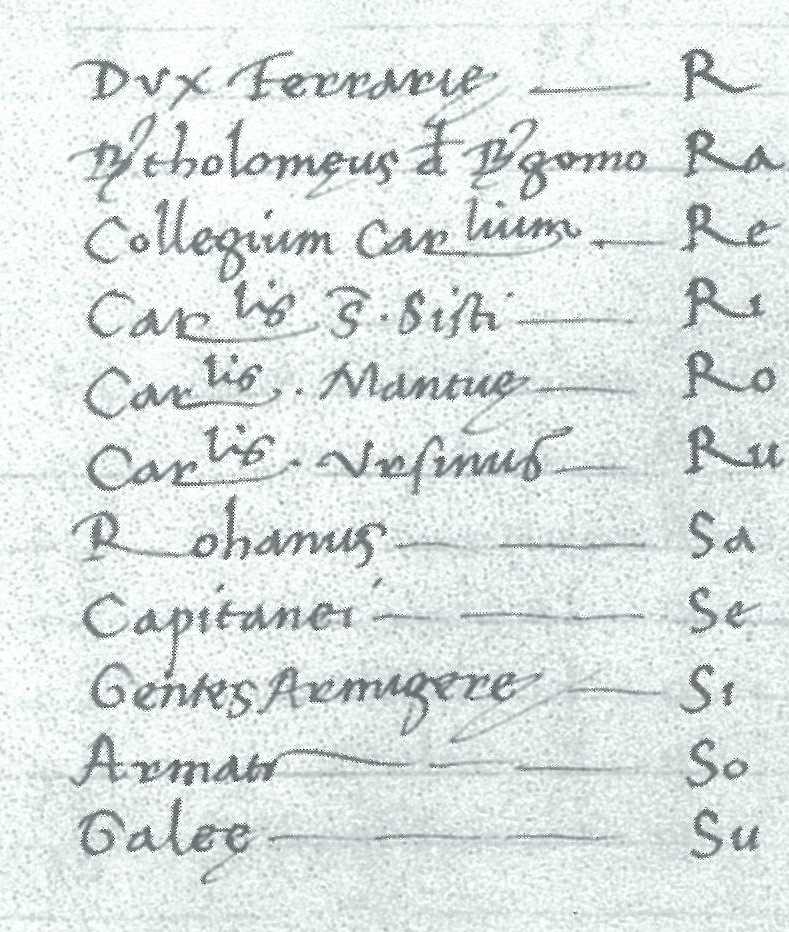 Dvx Ferrarie — R
Btholomeus d Bgomo Ra
Collegium Carlium — Re
Carlis S. Sisti — Ri
Carlis. Mantue — Ro
Carlis. Vrsinus — Ru
Rohanus — — Sa
Capitanei — — Se
Gentes Armigere — Si
Armati — — So
Galee — — — Su